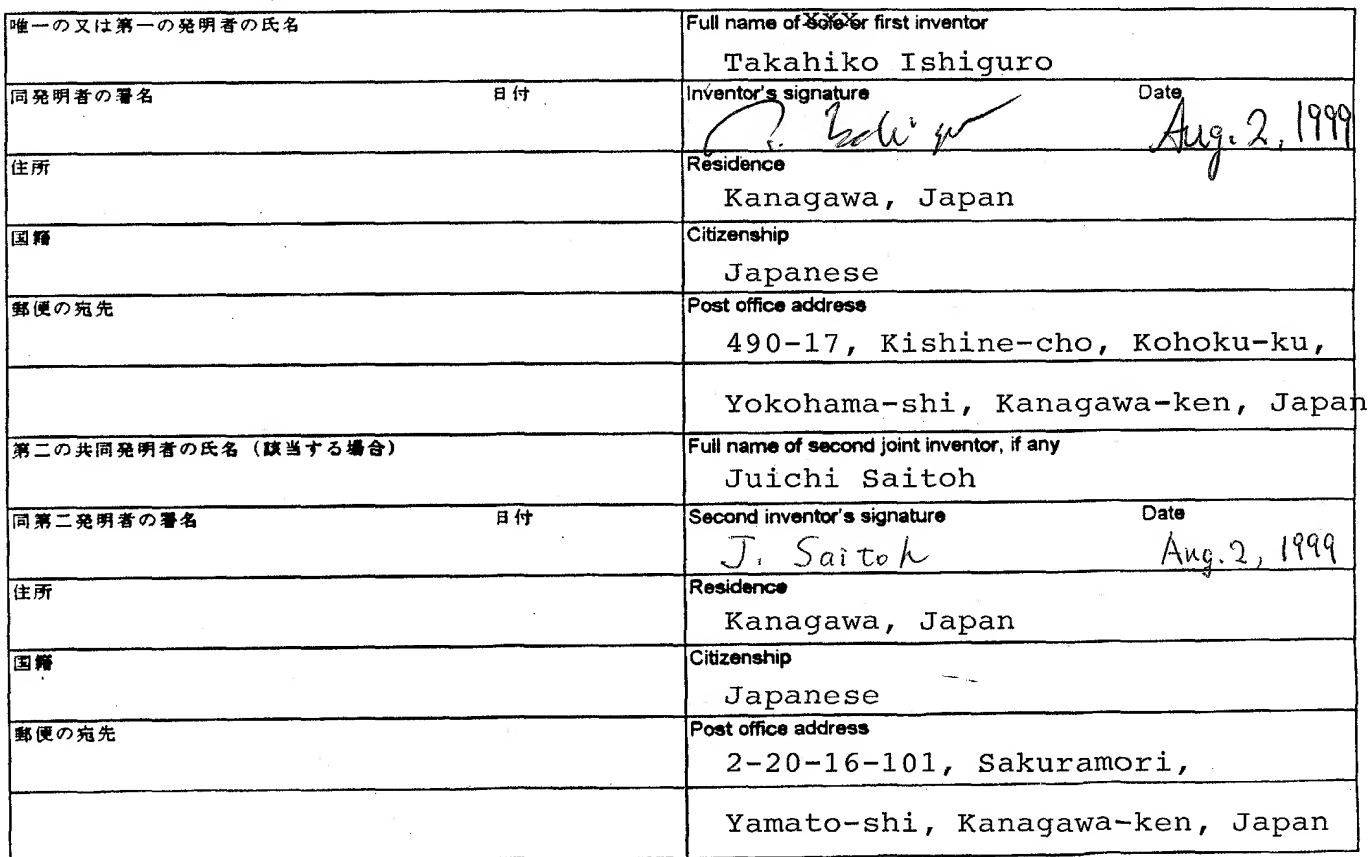 唯一の又は第一の発明者の氏名
Full name of sole or first inventor
Takahiko Ishiguro
同発明者の署名 日付
Inventor's signature Date
Aug. 2, 1999
住所
Residence
Kanagawa, Japan
国籍
Citizenship
Japanese
郵便の宛先
Post office address
490-17, Kishine-cho, Kohoku-ku,
Yokohama-shi, Kanagawa-ken, Japan
第二の共同発明者の氏名 (該当する場合)
Full name of second joint inventor, if any
Juichi Saitoh
同第二発明者の署名 日付
Second inventor's signature Date
J. Saitoh Aug. 2, 1999
住所
Residence
Kanagawa, Japan
国籍
Citizenship
Japanese
郵便の宛先
Post office address
2-20-16-101, Sakuramori,
Yamato-shi, Kanagawa-ken, Japan